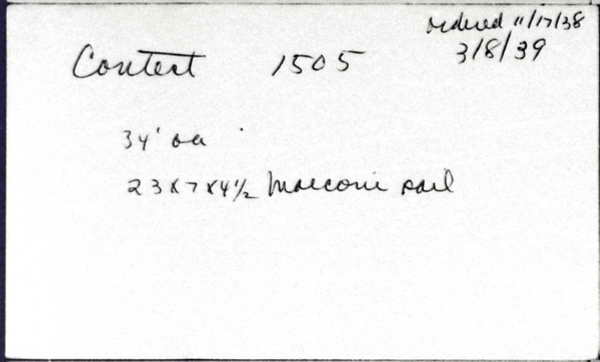 ordered 11/17/38
3/8/39
Contest 1505
34' oa
23 x 7 x 4 1/2 Marconi sail